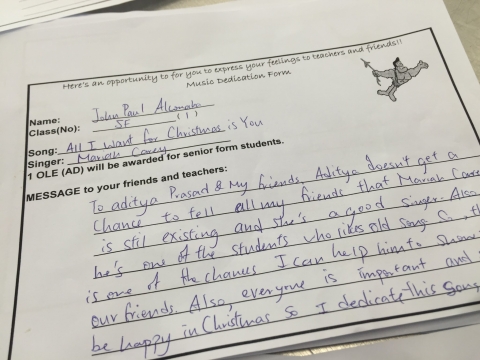 Here's an opportunity to for you to express your feelings to teachers and friends!!
Music Dedication Form
Name: John Paul
Class(No): 5F (1)
Song: All I want for Christmas is You
Singer: Mariah Carey
1 OLE (AD) will be awarded for senior form students.
MESSAGE to your friends and teachers:
To aditya Prasad & My friends, Aditya doesn't get a
Chance to tell all my friends that Mariah Carey
is still existing and she's a good singer. Also
he's one of the students who likes old song so, th
is one of the chances I can help him to
our friends. Also, everyone is important and
be happy in Christmas so I dedicate This song